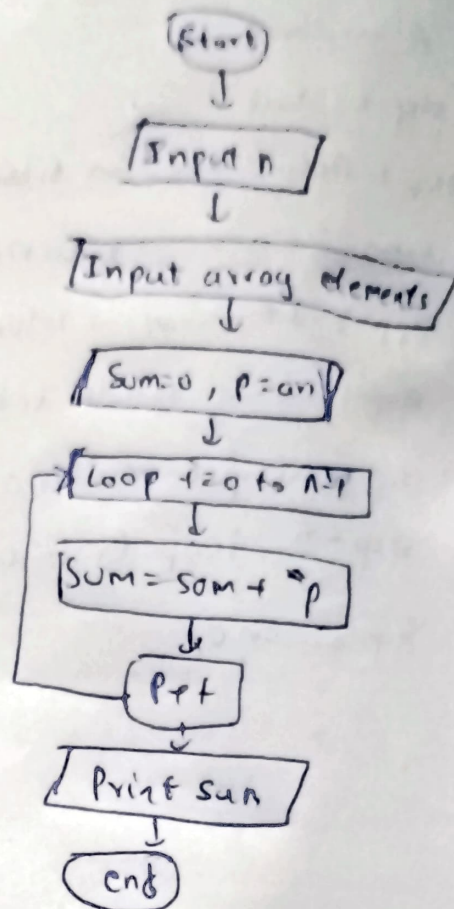 Start
Input n
Input array elements
Sum=0, P=arr
Loop i=0 to n-1
SUM = SOM + *p
P++
Print sum
end